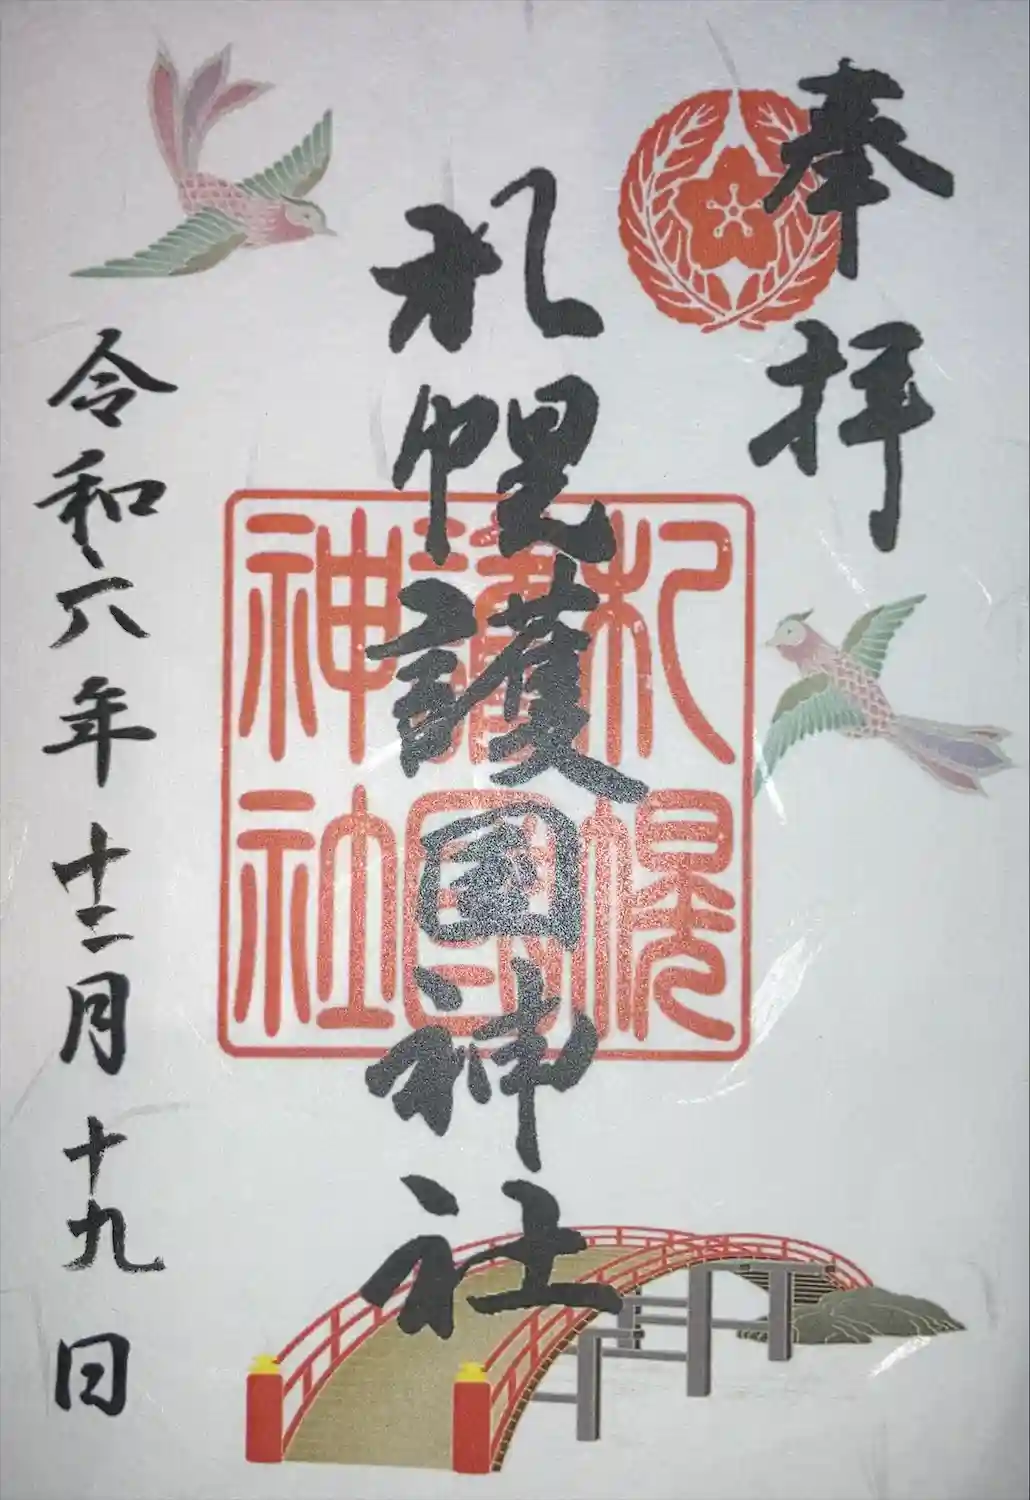 奉拝
札幌護国神社
札幌護國神社
令和六年十二月十九日